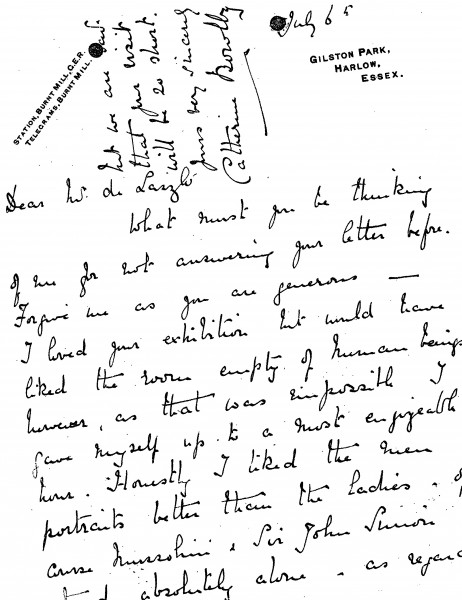 July 6th
GILSTON PARK,
HARLOW,
ESSEX.
STATION, BURNT MILL, G.E.R.
TELEGRAMS, BURNT MILL.
Dear Mr. de Laszlo
What must you be thinking
of me for not answering your letter before.
Forgive me as you are generous —
I loved your exhibition but would have
liked the room empty of human beings
however, as that was impossible I
gave myself up to a most enjoyable
hour. Honestly I liked the men
portraits better than the ladies. of
course Mussolini & Sir John Simon
absolutely alone. as regards
but we are
that your visit
will be so short.
yours very sincerely
Catherine